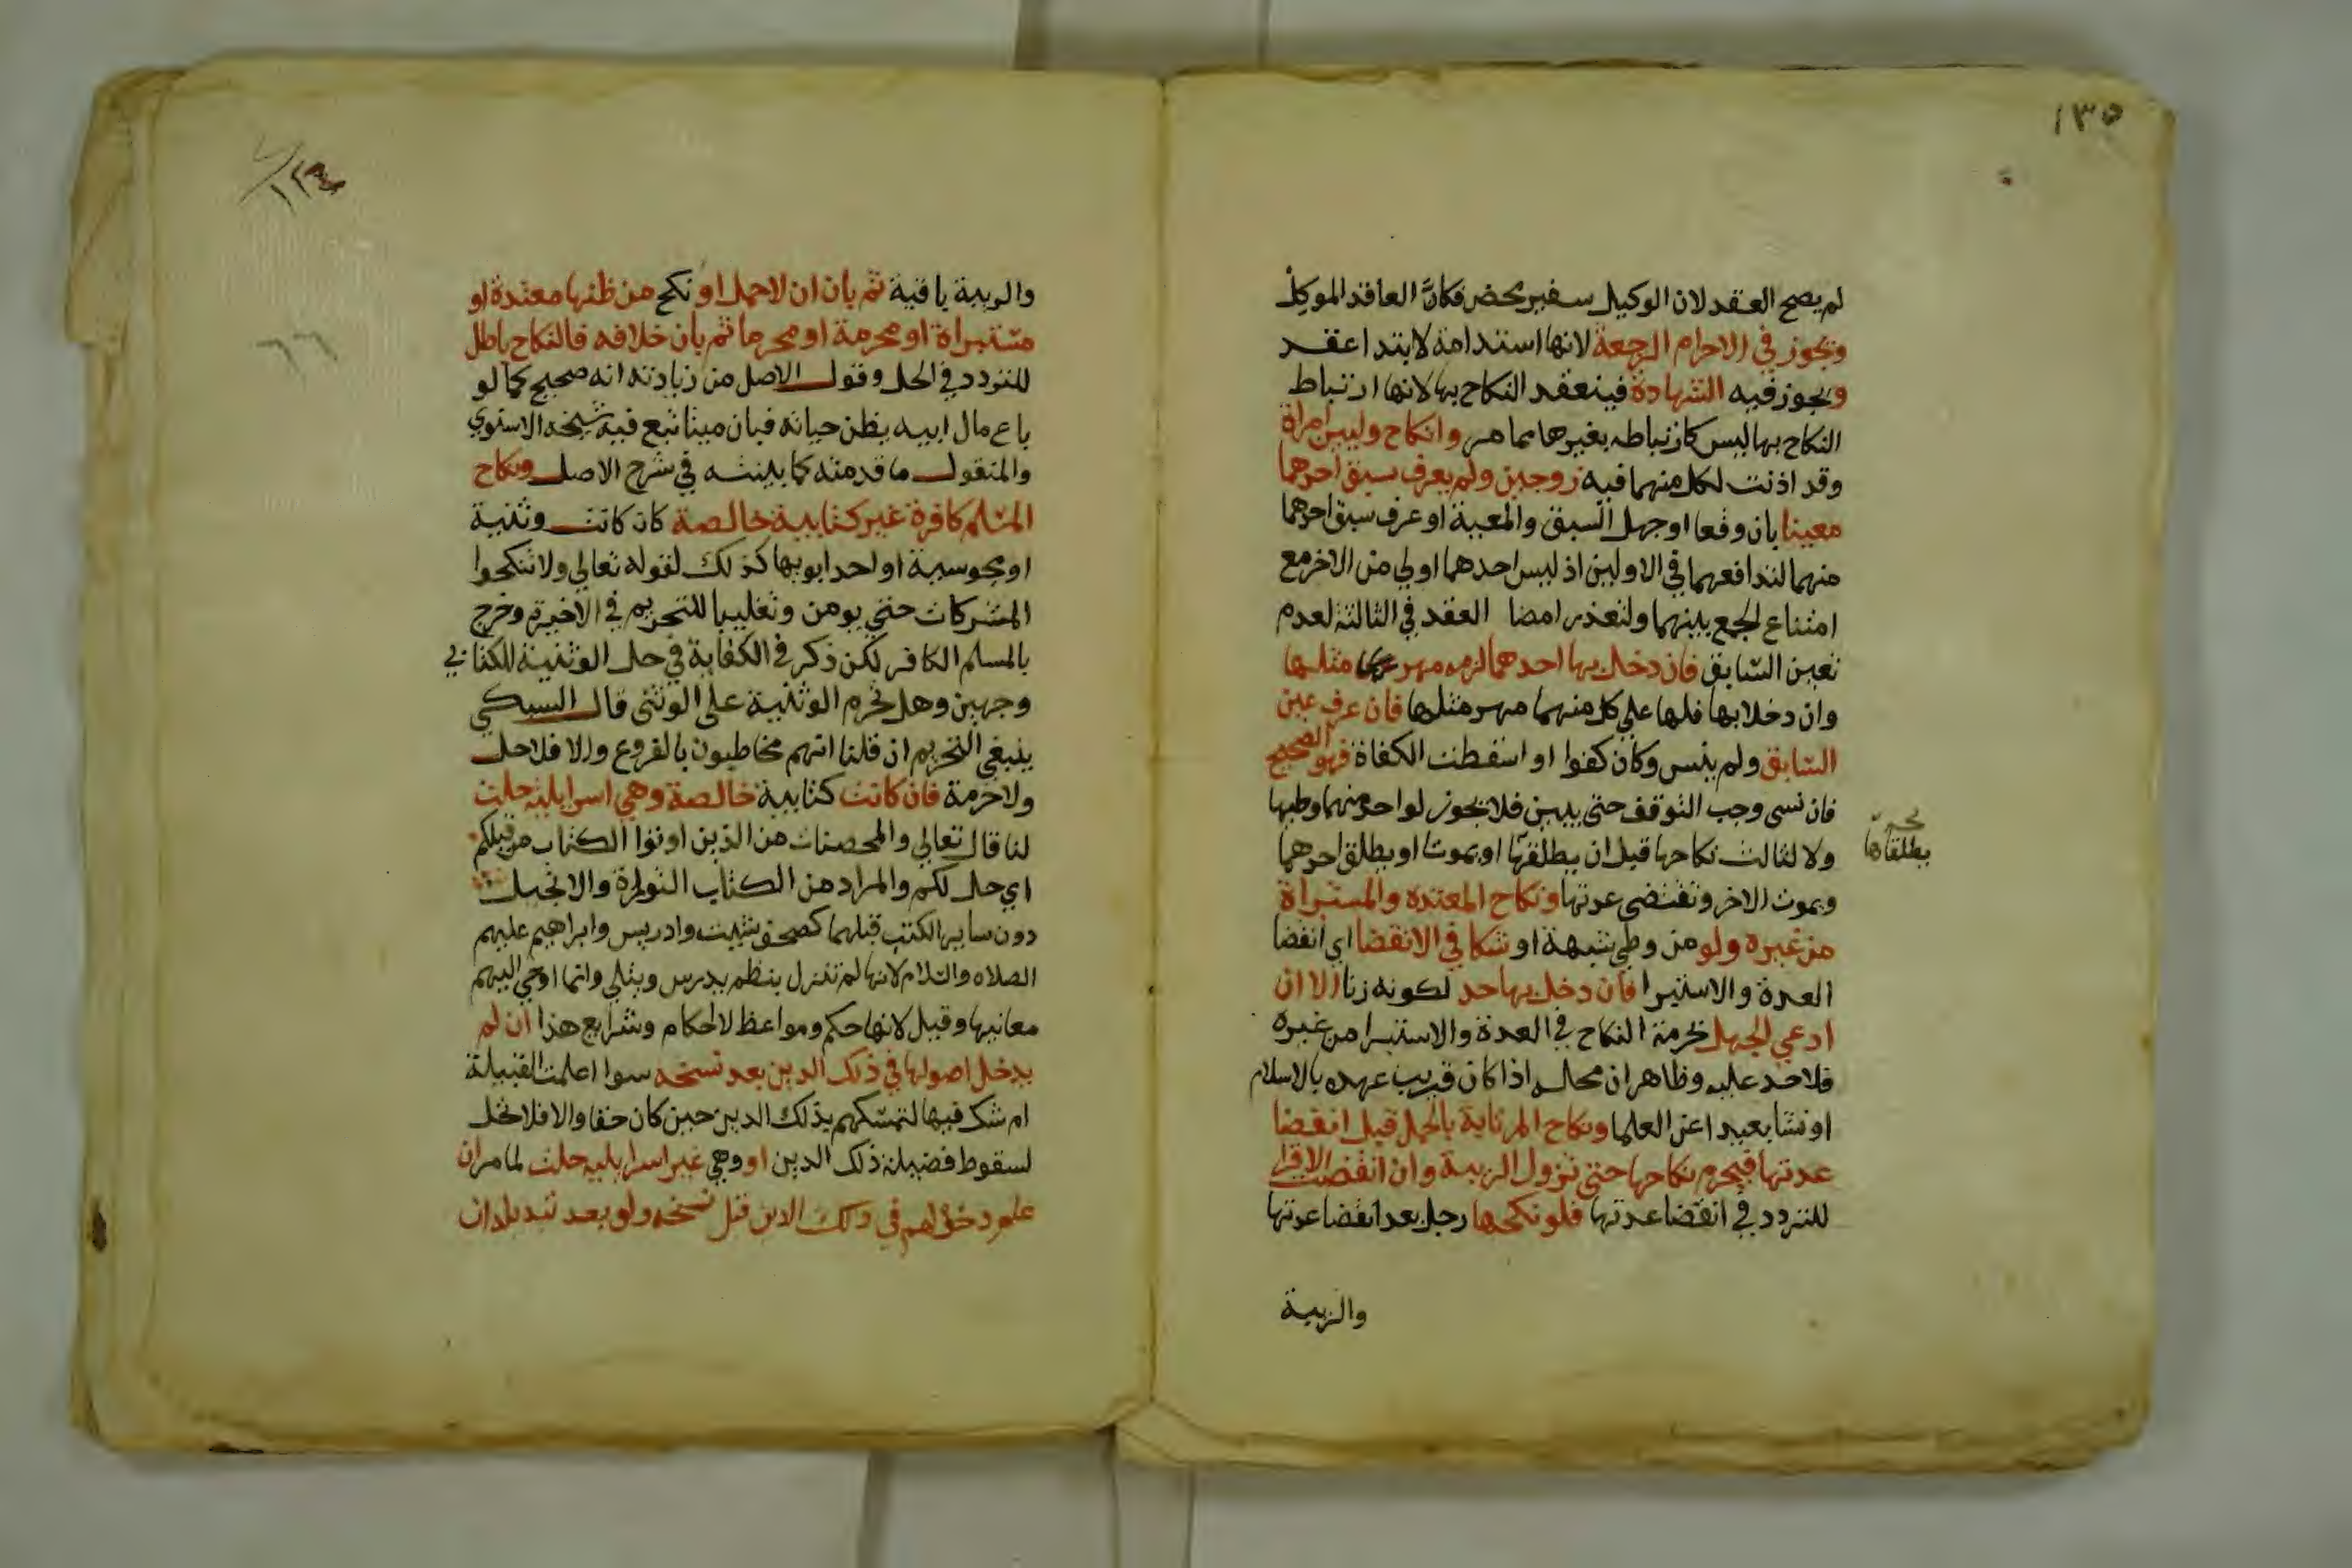 ١٣٥
لم يصح العقد لان الوكيل سفير محض فكانّ العاقد الموكل
ويجوز في الاحرام الرجعة لانها استدامة لابتدا عقد
ويجوز فيه الشهادة فينعقد النكاح بها لانها ارتباط
النكاح بها ليس كارتباطه بغيرها مما مر وانكاح وليين امراة
وقد اذنت لكل منهما فيه زوجين ولم يعرف سبق احدهما
معينا بان وقعا او جهل السبق والمعية او عرف سبق احدهما
منهما لتدافعهما في الاولين اذ ليس احدهما اولي من الاخر مع
امتناع الجمع بينهما ولتعذر امضا العقد في الثالثة لعدم
تعين السابق فان دخل بها احدهما لزمه مهر مثلها
وان دخلا بها فلها علي كل منهما مهر مثلها فان عرف عين
السابق ولم ينس وكان كفوا او اسقطت الكفاة فهو الصحيح
فان نسي وجب التوقف حتى يبين فلا يجوز لواحد منهما وطيها
ولا لثالث نكاحها قبل ان يطلقها او يموتا او يطلق احدهما
يطلقاها
ويموت الاخر وتنقضي عدتها ونكاح المعتدة والمستبراة
من غيره ولو من وطي شبهة او شكا في الانقضا اي انقضا
العدة والاستبرا فان دخل بها حد لكونه زنا الا ان
ادعي الجهل بحرمة النكاح في العدة والاستبرا من غيره
فلا حد عليه وظاهر ان محله اذا كان قريب عهده بالاسلام
او نشا بعيدا عن العلما ونكاح المرتابة بالحمل قبل انقضا
عدتها فيحرم نكاحها حتى تزول الريبة وان انقضت الاقرا
للتردد في انقضا عدتها فلو نكحها رجل بعد انقضا عدتها
والريبة
والريبة باقية ثم بان ان لا حمل او نكح من ظنها معتدة او
مستبراة او محرمة او محرما ثم بان خلافه فالنكاح باطل
للتردد في الحل وقول الاصل من زيادته انه صحيح كما لو
باع مال ابيه يظن حياته فبان ميتا تبع فيه شيخه الاسنوي
والمنقول ما قدمته كما بينته في شرح الاصل ونكاح
المسلم كافرة غير كتابية خالصة كان كانت وثنية
او مجوسية او احد ابويها كذلك لقوله تعالي ولا تنكحوا
المشركات حتي يومن وتغليبا للتحريم في الاخيرة وخرج
بالمسلم الكافر لكن ذكر في الكفاية في حل الوثنية للكتابي
وجهين وهل تحرم الوثنية على الوثني قال السبكي
ينبغي التحريم ان قلنا انهم مخاطبون بالفروع والا فلا حل
ولا حرمة فان كانت كتابية خالصة وهي اسرايلية حلت
لنا قال تعالي والمحصنات من الذين اوتوا الكتاب من قبلكم
اي حل لكم والمراد من الكتاب التوراة والانجيل
دون ساير الكتب قبلهما كصحف شيث وادريس وابراهيم عليهم
الصلاه والسلام لانها لم تنزل بنظم يدرس ويتلي وانما اوحي اليهم
معانيها وقيل لانها حكم ومواعظ لا احكام وشرايع هذا ان لم
يدخل اصولها في ذلك الدين بعد نسخه سوا اعلمت القبيلة
ام شك فيها لتمسكهم بذلك الدين حين كان حقا والا فلا تحل
لسقوط فضيلة ذلك الدين او وهي غير اسرايلية حلت لما مر ان
علم دخولهم في ذلك الدين قبل نسخه ولو بعد تبديله ان